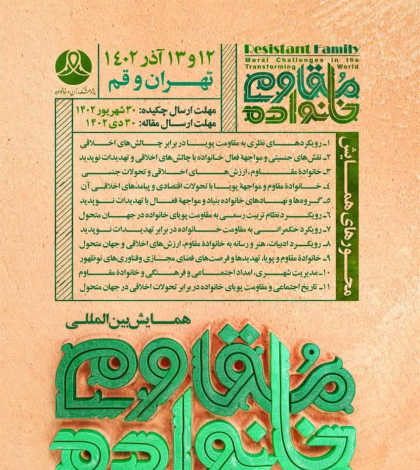 Resistant Family
Moral Challenges in the
Transforming World
مقاوم
خانواده
۱۲ و ۱۳ آذر ۱۴۰۲
تهران و قم
پژوهشکده زن و خانواده
مهلت ارسال چکیده: ۳۰ شهریور ۱۴۰۲
مهلت ارسال مقاله: ۳۰ دی ۱۴۰۲
محورهای همایش
۱- رویکردهای نظری به مقاومت پویا در برابر چالش‌های اخلاقی
۲- نقش‌های جنسیتی و مواجهۀ فعال خانواده با چالش‌های اخلاقی و تهدیدات نوپدید
۳- خانوادۀ مقاوم، ارزش‌های اخلاقی و تحولات جنسی
۴- خانوادۀ مقاوم و مواجهۀ پویا با تحولات اقتصادی و پیامدهای اخلاقی آن
۵- گروه‌ها و نهادهای خانواده بنیاد و مواجهۀ فعال با تهدیدات نوپدید
۶- رویکرد نظام تربیت رسمی به مقاومت پویای خانواده در جهان متحول
۷- رویکرد حکمرانی به مقاومت خانواده در برابر تهدیدات نوپدید
۸- رویکرد ادبیات، هنر و رسانه به خانوادۀ مقاوم، ارزش‌های اخلاقی و جهان متحول
۹- خانوادۀ مقاوم و پویا، تهدیدها و فرصت‌های فضای مجازی و فناوری‌های نوظهور
۱۰- مدیریت شهری، امداد اجتماعی و فرهنگی و خانوادۀ مقاوم
۱۱- تاریخ اجتماعی و مقاومت پویای خانواده در برابر تحولات اخلاقی در جهان متحول
همایش بین‌المللی
مقاوم
خانواده